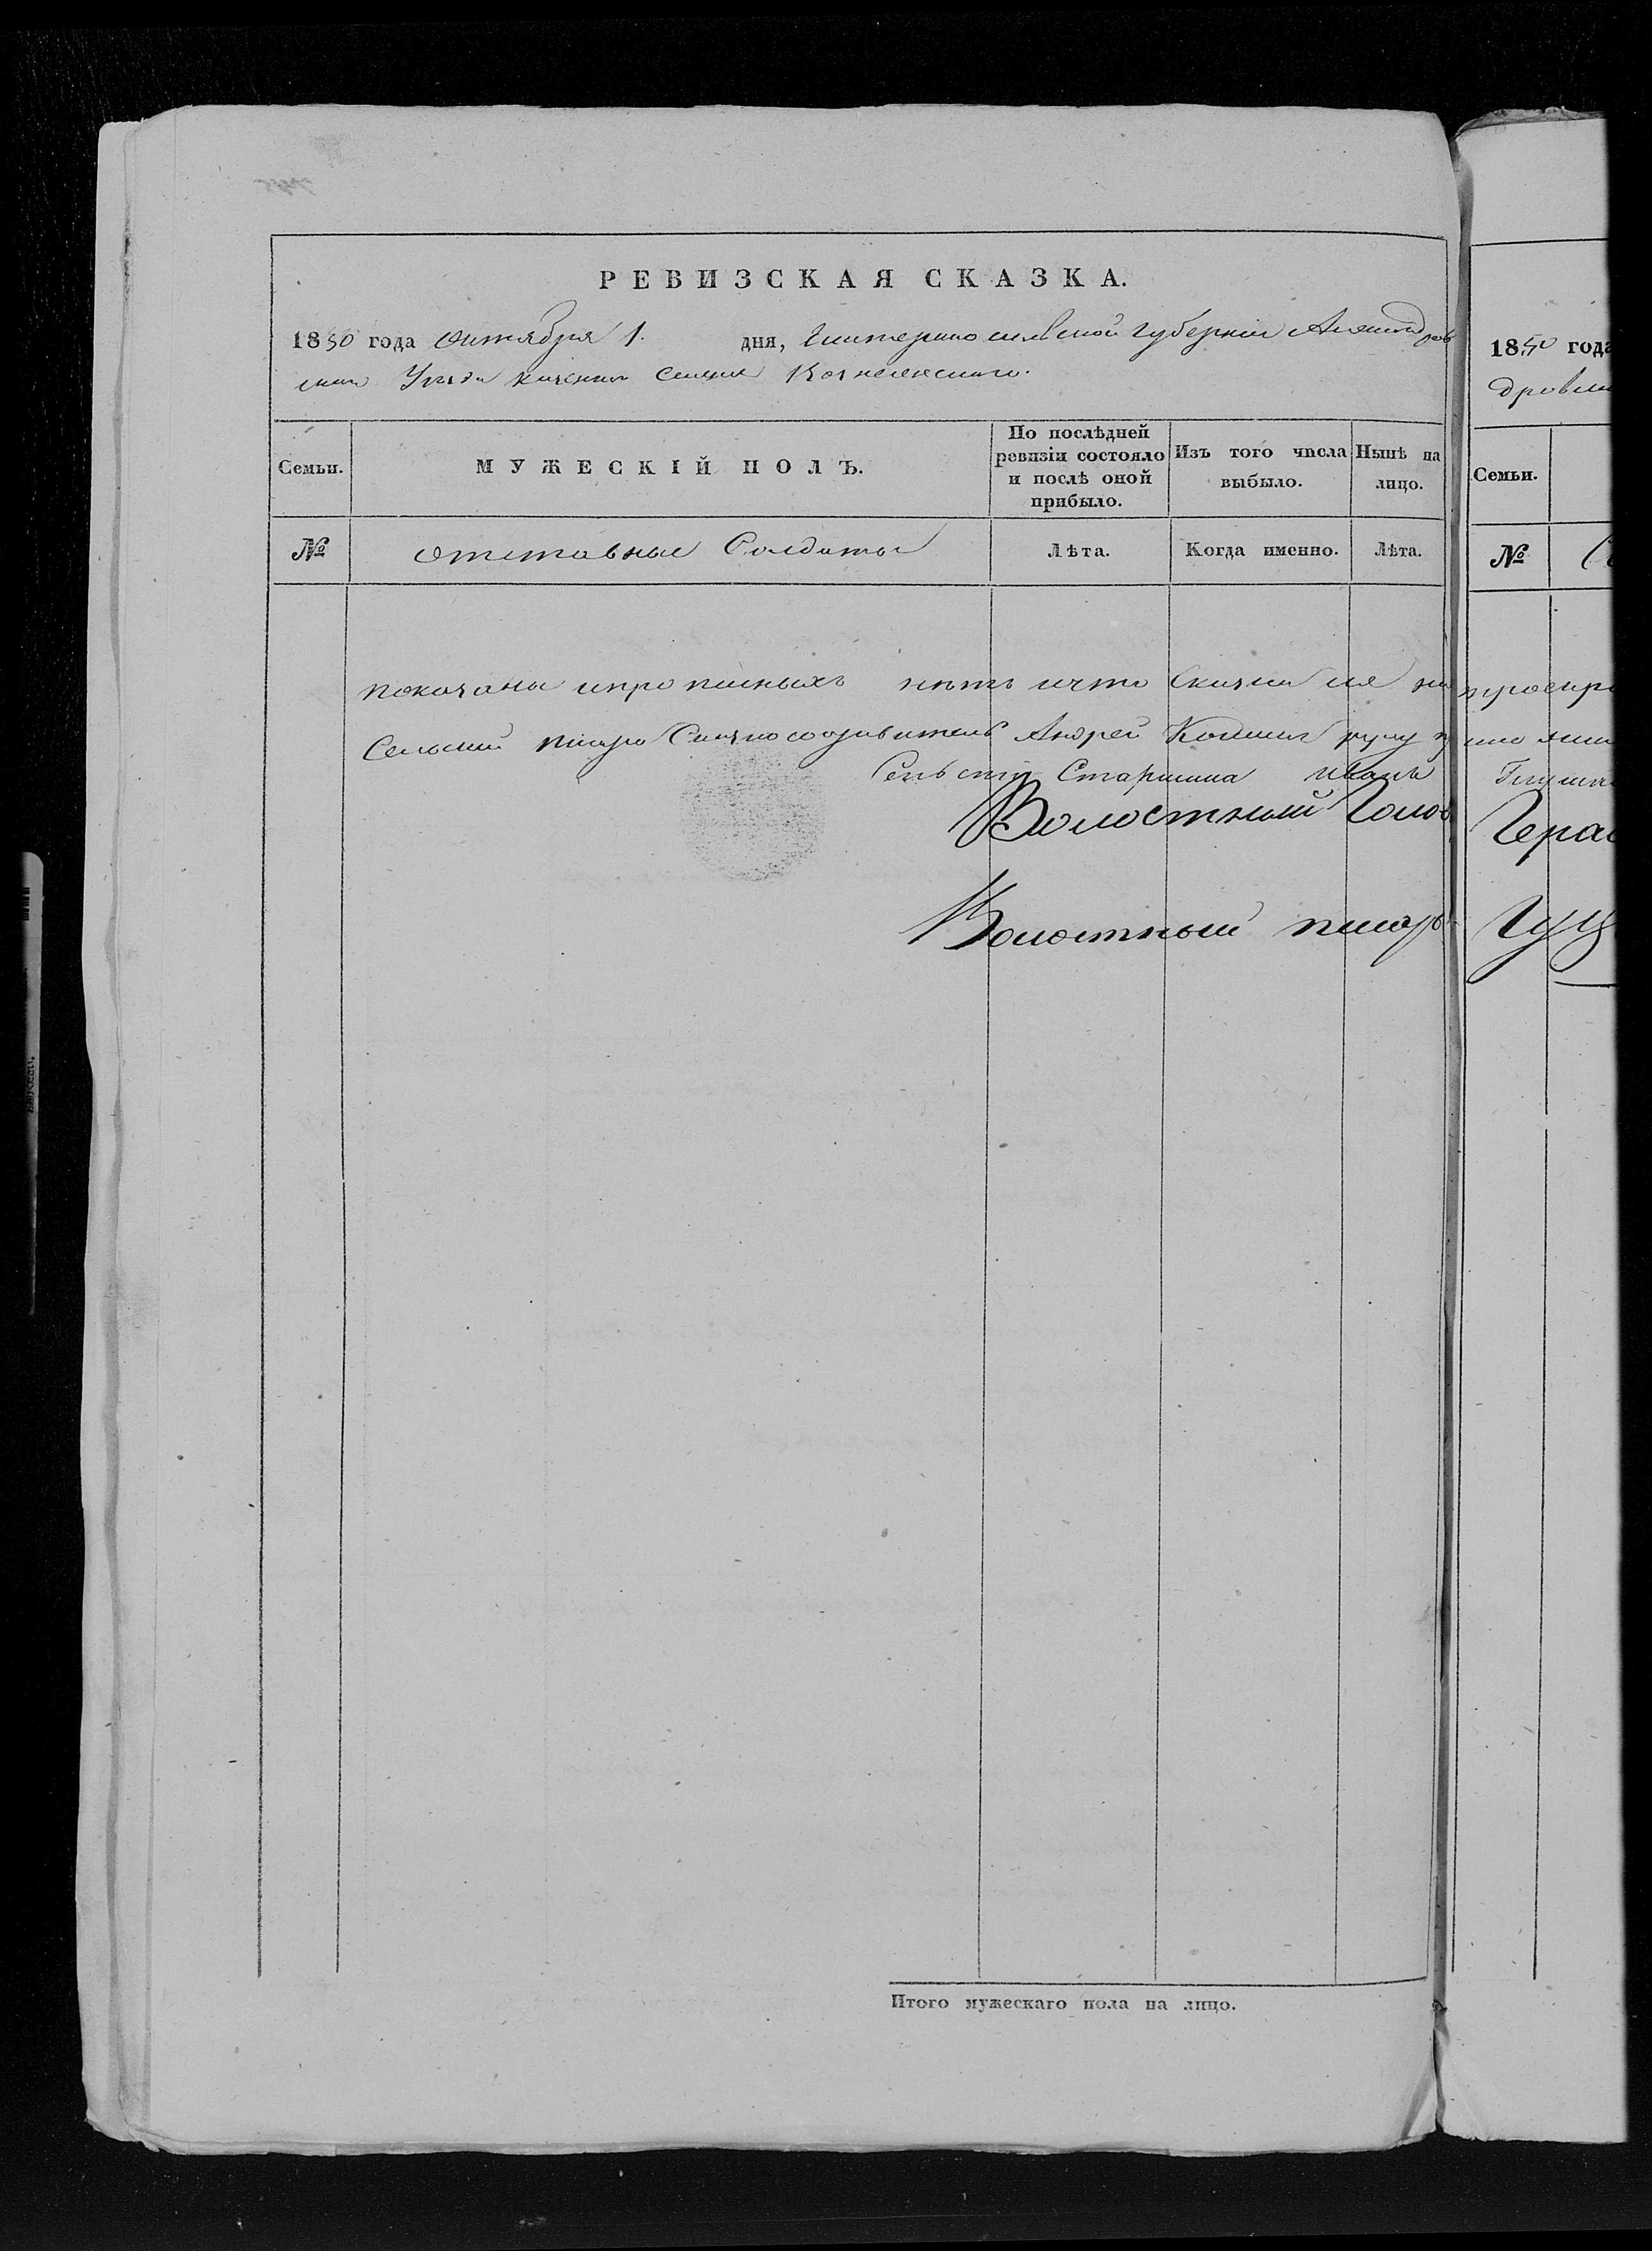 РЕВИЗСКАЯ СКАЗКА.
1850 года Октября 1. дня, Екатеринославской Губернии Александров
скаго Уезда казенного селения Вознесенскаго.
Семьи. МУЖЕСКІЙ ПОЛЪ. По послѣдней ревизіи состояло и послѣ оной прибыло. Изъ того числа выбыло. Нынѣ на лицо.
№ отставные Солдаты Лѣта. Когда именно. Лѣта.
показаны и прописныхъ нѣтъ и что Сказка
Сельскій писарь Сказкосоставитель Андрей руку
Сельскій Старшина Иванъ
Волостный Голова
Волостный писарь
Итого мужескаго пола на лицо.
1850 года
Семьи.
№